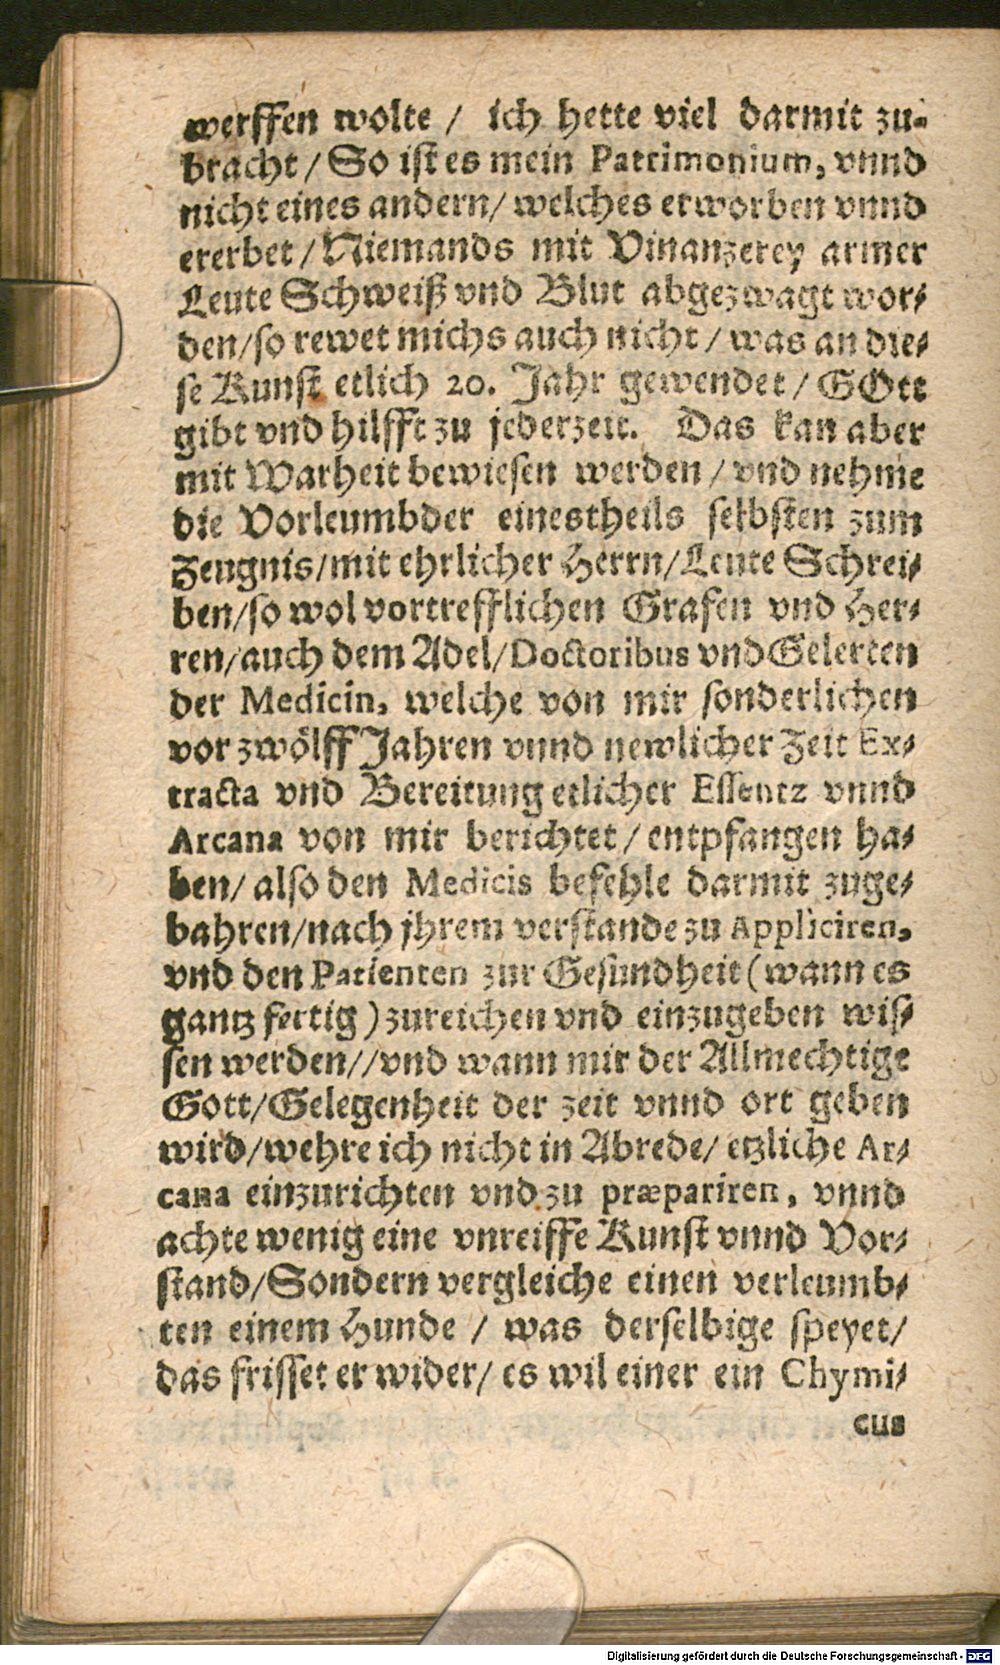 werffen wolte / ich hette viel darmit zu-
bracht / So ist es mein Patrimonium, vnnd
nicht eines andern / welches erworben vnnd
ererbet / Niemands mit Vinanzerey armer
Leute Schweiß vnd Blut abgezwagt wor-
den / so rewet michs auch nicht / was an die-
se Kunst etlich 20. Jahr gewendet / GOtt
gibt vnd hilfft zu jederzeit. Das kan aber
mit Warheit bewiesen werden / vnd nehme
die Vorleumbder einestheils selbsten zum
Zeugnis / mit ehrlicher Herrn / Leute Schrei-
ben / so wol vortrefflichen Grafen vnd Her-
ren / auch dem Adel / Doctoribus vnd Gelerten
der Medicin, welche von mir sonderlichen
vor zwölff Jahren vnnd newlicher Zeit Ex-
tracta vnd Bereitung etlicher Essentz vnnd
Arcana von mir berichtet / entpfangen ha-
ben / also den Medicis befehle darmit zuge-
bahren / nach jhrem verstande zu Appliciren,
vnd den Patienten zur Gesundheit (wann es
gantz fertig) zureichen vnd einzugeben wis-
sen werden // vnd wann mir der Allmechtige
Gott / Gelegenheit der zeit vnnd ort geben
wird / wehre ich nicht in Abrede / etzliche Ar-
cana einzurichten vnd zu præpariren, vnnd
achte wenig eine vnreiffe Kunst vnnd Vor-
stand / Sondern vergleiche einen verleumb-
ten einem Hunde / was derselbige speyet /
das frisset er wider / es wil einer ein Chymi-
cus
Digitalisierung gefördert durch die Deutsche Forschungsgemeinschaft - DFG